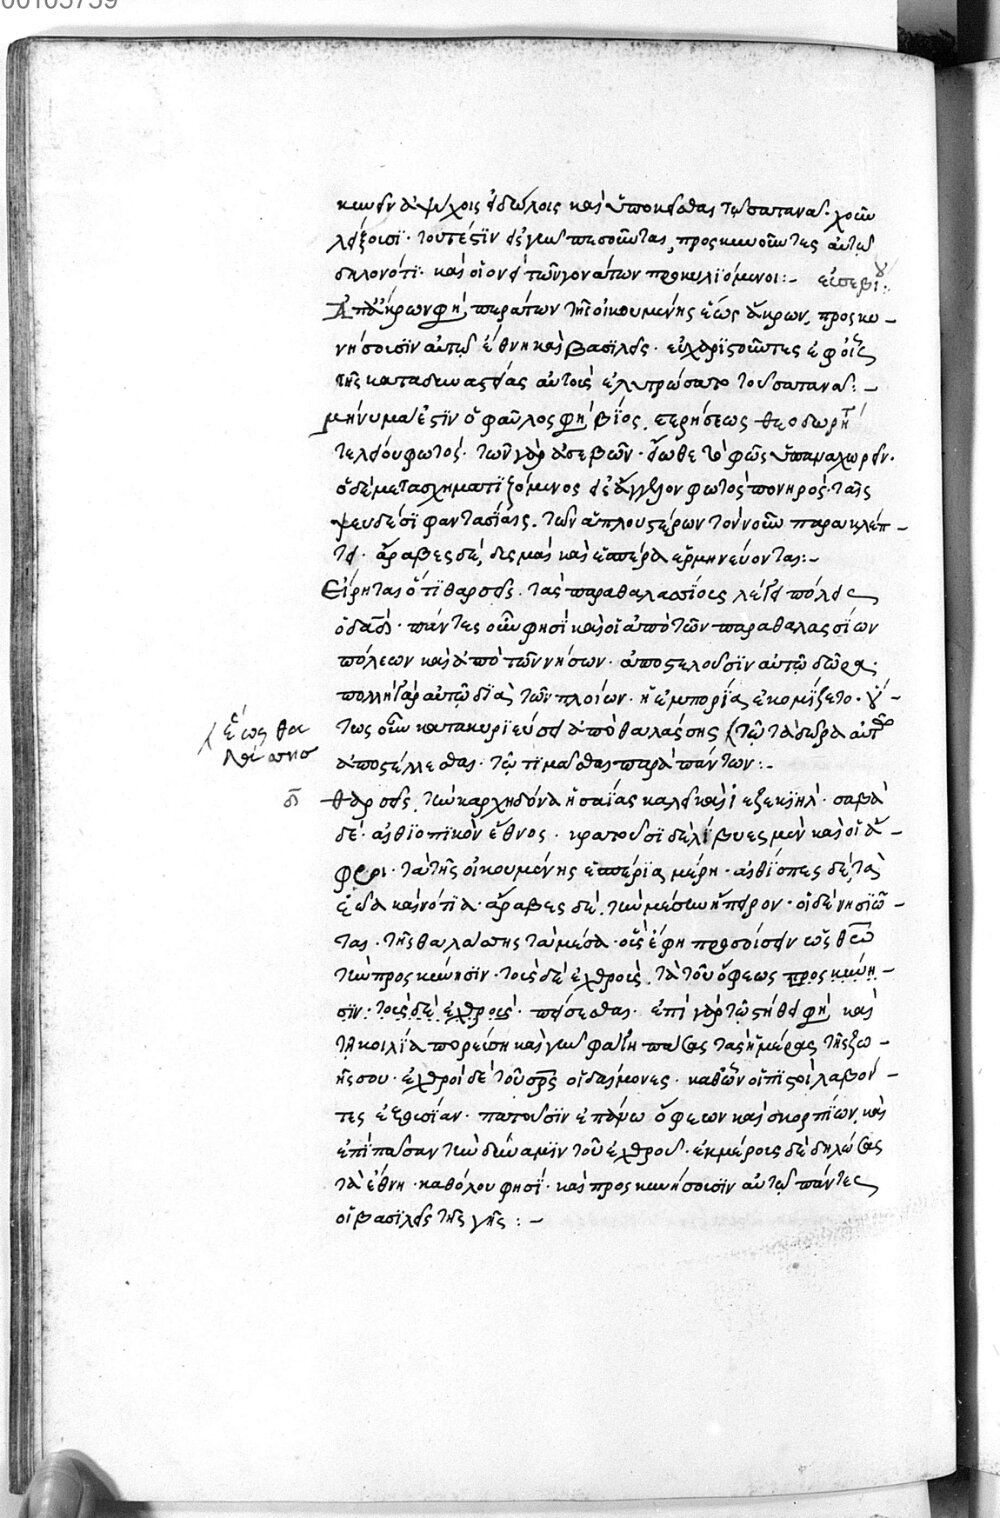 00103739
κινεῖν ἀψύχοις εἰδώλοις καὶ ὑποκεῖσθαι τῷ σατανᾷ· χοῦν
λείξουσϊ· τουτέστϊν εἰς γῆν πεσοῦνται, προσκυνοῦντες αὐτῷ
δηλονότϊ· καὶ οἱονεὶ τῶν γονάτων προκυλϊόμενοι:– εὐσεβίου:
Ἀπ' ἄκρων φησὶ, περάτων τῆς οἰκουμένης ἕως ἄκρων, προσκυ–
νήσουσϊν αὐτῷ ἔθνη καὶ βασιλεῖς· εὐχαρϊστοῦντες ἐφ' οἷς
τῆς καταδυναστείας αὐτοὺς ἐλυτρώσατο τοῦ σατανᾶ:–
μήνυμα ἐστϊν ὁ φαῦλος φησὶ βίος, στερήσεως θεοδωρήτ
τελείου φωτός· τῶν γὰρ ἀσεβῶν· εἴωθε τὸ φῶς ὑπαναχωρεῖν·
ὁ δὲ μετασχηματϊζόμενος εἰς ἄγγελον φωτὸς πονηρὸς· ταῖς
ψευδέσϊ φαντασίαις, τῶν ἁπλουστέρων τὸν νοῦν παρακλέπ–
τει· ἄραβες δὲ, δυσμαὶ καὶ ἑσπέρα ἑρμηνεύονται:–
Εἴρηται ὅτϊ θαρσεῖς, τὰς παραθαλασσίους λέγει πόλεις
ὁ δαδ· πάντες οὖν φησὶ καὶ οἱ ἀπὸ τῶν παραθαλασσίων
πόλεων καὶ ἀπὸ τῶν νήσων· ἀποστελοῦσϊν αὐτῷ δῶρα·
πολλὴ γὰρ αὐτῷ δϊὰ τῶν πλοίων· ἡ ἐμπορία ἐκομίζετο· οὕ–
τως οὖν κατακυρϊεύσει ἀπὸ θαλάσσης (τῷ τὰ δῶρα αὐτῷ
ἕως θα
λάσσησ
ἀποστέλλεσθαι· τῷ τϊμᾶσθαι παρὰ πάντων:–
θαρσεῖς, τὴν καρχηδόνα ἡσαΐας καλεῖ καὶ ἰεζεκιήλ· σαβὰ
δὲ· αἰθϊοπϊκὸν ἔθνος· κρατοῦσϊ δὲ λίβυες μὲν καὶ οἱ ἄ–
φροι· τὰ τῆς οἰκουμένης ἑσπέρϊα μέρη· αἰθίοπες δὲ, τὰ
ἑῶα καὶ νότϊα· ἄραβες δὲ, τὴν μέσην ἤπειρον· οἱ δὲ νησϊῶ–
ται, τῆς θαλάσσης τὰ μέσα· οὓς ἔφη προσοίσειν ὡς θεῷ
τὴν προσκύνησϊν· τοὺς δὲ ἐχθροὺς, τὰ τοῦ ὄφεως προσκύνη–
σϊν· τοὺς δὲ ἐχθροὺς· πείσεσθαι· ἐπὶ γὰρ τῷ στήθει φησὶ καὶ
τῇ κοιλίᾳ πορεύσῃ καὶ γῆν φάγῃ πάσας τὰς ἡμέρας τῆς ζω–
ῆς σου· ἐχθροὶ δὲ τοῦ σρς οἱ δαίμονες· καθ' ὧν οἱ πιστοὶ λαβόν–
τες ἐξουσίαν· πατοῦσϊν ἐπάνω ὄφεων καὶ σκορπίων, καὶ
ἐπὶ πᾶσαν τὴν δύναμϊν τοῦ ἐχθροῦ· ἐκ μέρους δὲ δηλώσας
τὰ ἔθνη· καθόλου φησϊ· καὶ προσκυνήσουσϊν αὐτῷ πάντες
οἱ βασϊλεῖς τῆς γῆς:–